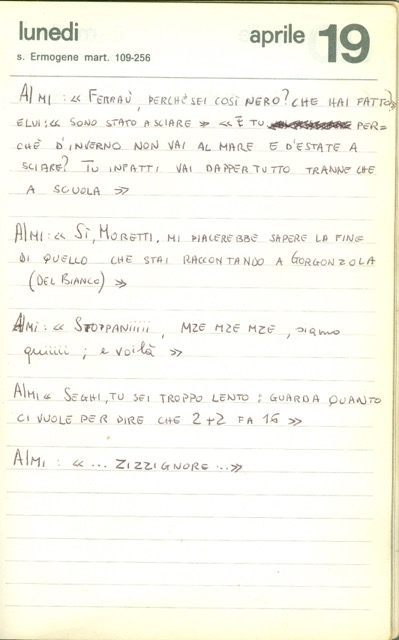 lunedì aprile 19
s. Ermogene mart. 109-256
AlMI : « FERRAÙ, PERCHÈ SEI COSÌ NERO? CHE HAI FATTO?»
E LUI: « SONO STATO A SCIARE » « E TU PER=
CHÈ D'INVERNO NON VAI AL MARE E D'ESTATE A
SCIARE? TU INFATTI VAI DAPPERTUTTO TRANNE CHE
A SCUOLA »
AlMI: « SÌ, MORETTI, MI PIACEREBBE SAPERE LA FINE
DI QUELLO CHE STAI RACCONTANDO A GORGONZOLA
(DEL BIANCO) »
AlMI: « STOPPANIIIII, MZE MZE MZE, siamo
quiiiii ; e voilà »
AlMI « SEGHI, TU SEI TROPPO LENTO : GUARDA QUANTO
CI VUOLE PER DIRE CHE 2+2 FA 16 »
AlMI : « ... ZIZZIGNORE ... »